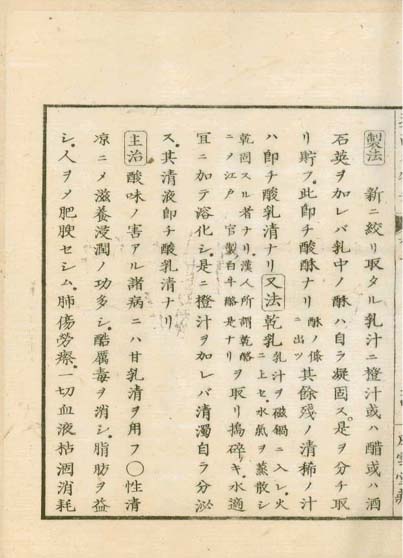 製法 新ニ絞リ取タル乳汁ニ橙汁或ハ醋或ハ酒
石英ヲ加レバ乳中ノ酥ハ自ラ凝固ス。是ヲ分チ取
リ貯フ。此即チ酸酥ナリ 酥ノ條ニ出ツ 其餘残ノ清稀ノ汁
ハ即チ酸乳清ナリ 又法 乾乳 乳汁ヲ磁鍋ニ入レ。火ニ上セ。水氣ヲ蒸散シ
乾固スル者ナリ。漢人所謂乾酪ニノ江戸 官製白牛酪是ナリ ヲ取リ搗碎キ。水適
宜ニ加テ溶化シ。是ニ橙汁ヲ加レバ清濁自ラ分泌
ス。其清液即チ酸乳清ナリ
主治 酸味ノ害アル諸病ニハ甘乳清ヲ用フ〇性清
凉ニメ滋養浸潤ノ功多シ。酷厲毒ヲ消シ。脂肪ヲ益
シ。人ヲメ肥腴セシム。肺傷勞瘵。一切血液枯涸消耗